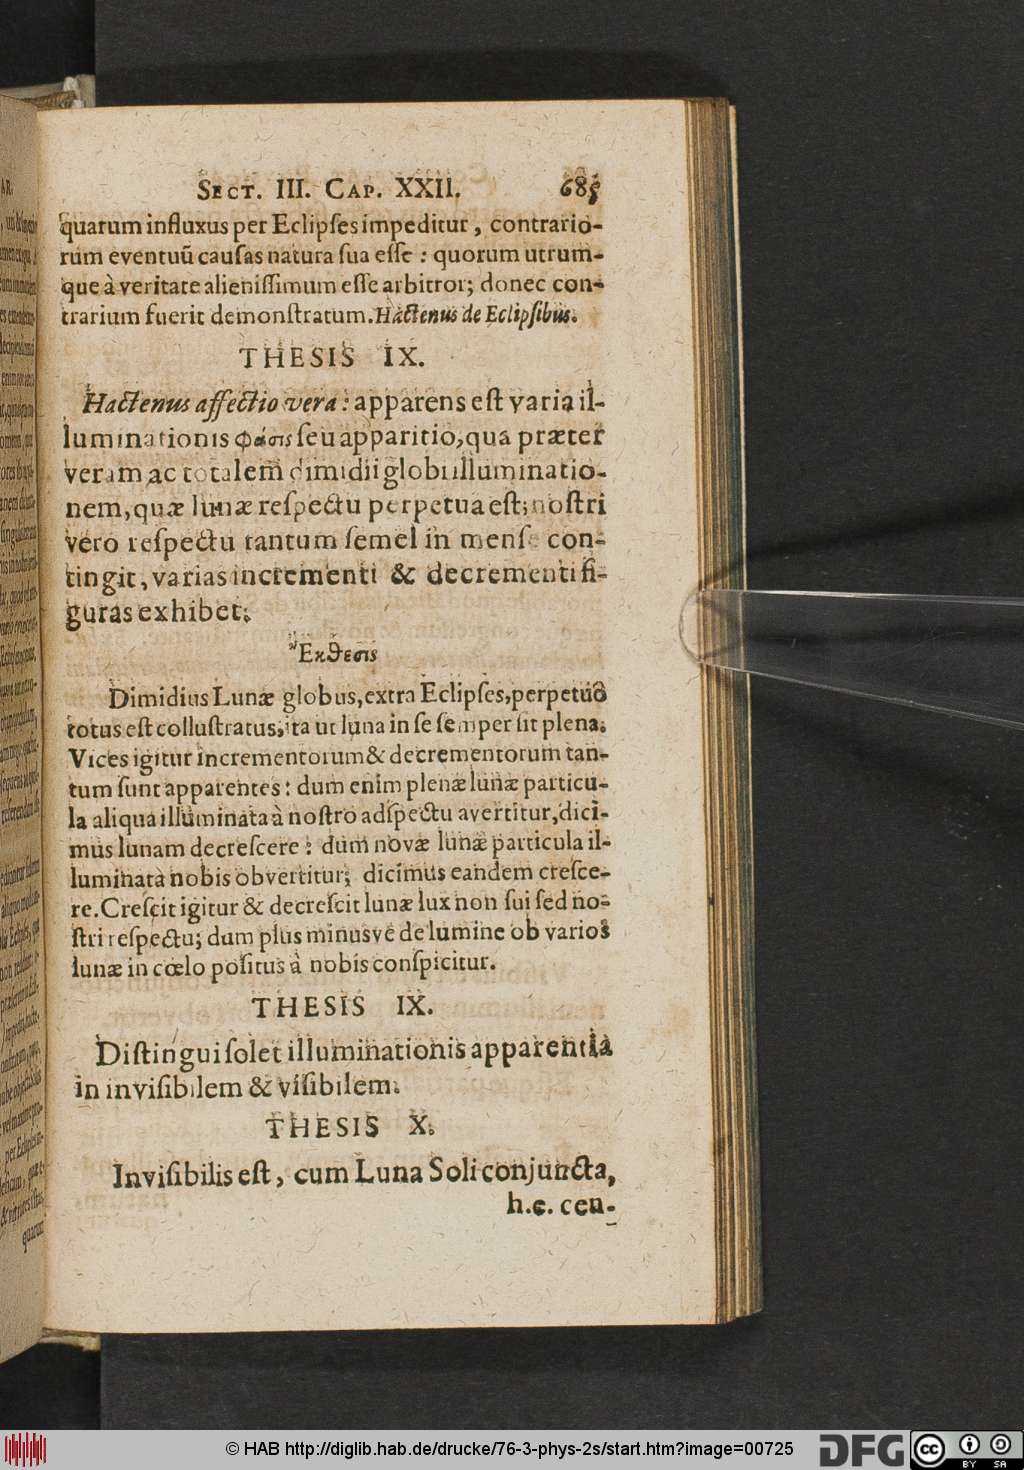 Sect. III. Cap. XXII. 685
quarum influxus per Eclipſes impeditur, contrario-
rum eventuū cauſas natura ſua eſſe : quorum utrum-
que à veritate alieniſſimum eſſe arbitror; donec con-
trarium fuerit demonſtratum. Hactenus de Eclipſibus.
THESIS IX.
Hactenus affectio vera : apparens eſt varia il-
luminationis φάσις ſeu apparitio, qua præter
veram ac totalem dimidii globi illuminatio-
nem, quæ lunæ reſpectu perpetua eſt; noſtri
vero reſpectu tantum ſemel in menſe con-
tingit, varias incrementi & decrementi fi-
guras exhibet.
Ἔκθεσις
Dimidius Lunæ globus, extra Eclipſes, perpetuò
totus eſt colluſtratus; ita ut luna in ſe ſemper ſit plena.
Vices igitur incrementorum & decrementorum tan-
tum ſunt apparentes : dum enim plenæ lunæ particu-
la aliqua illuminata à noſtro adſpectu avertitur, dici-
mus lunam decreſcere : dum novæ lunæ particula il-
luminata nobis obvertitur; dicimus eandem creſce-
re. Creſcit igitur & decreſcit lunæ lux non ſui ſed no-
ſtri reſpectu; dum plus minusve de lumine ob varios
lunæ in cœlo poſitus à nobis conſpicitur.
THESIS IX.
Diſtingui ſolet illuminationis apparentia
in inviſibilem & viſibilem.
THESIS X.
Inviſibilis eſt, cum Luna Soli conjuncta,
h.e. cen-
© HAB http://diglib.hab.de/drucke/76-3-phys-2s/start.htm?image=00725
DFG
CC BY SA